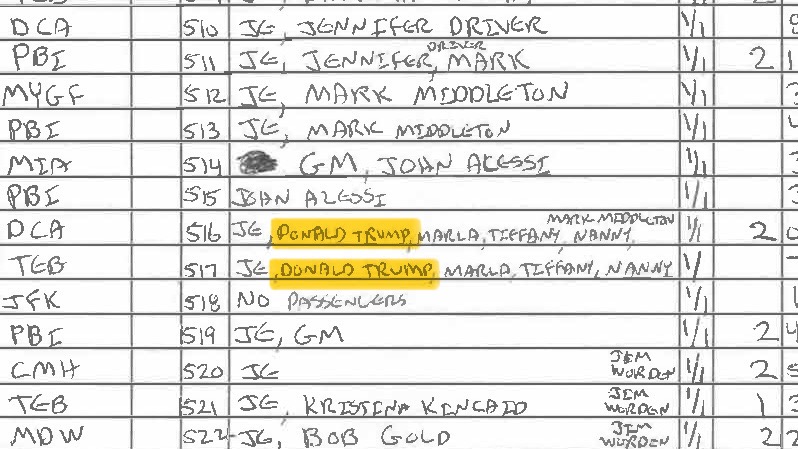 DCA 510 JE JENNIFER DRIVER 1/1
PBI 511 JE, JENNIFER DRIVER, MARK 1/1 2 1
MYGF 512 JE, MARK MIDDLETON 1/1 3
PBI 513 JE, MARK MIDDLETON 1/1
MIA 514 GM, JOHN ALESSI 1/1 3
PBI 515 ALESSI 1/1 3
DCA 516 JE, DONALD TRUMP, MARLA, TIFFANY, NANNY, MARK MIDDLETON 1/1 2 0
TEB 517 JE, DONALD TRUMP, MARLA, TIFFANY, NANNY 1/
JFK 518 NO PASSENGERS 1/1 1
PBI 519 JE, GM 1/1 2 4
CMH 520 JE JIM WORDEN 1/1 2 5
TEB 521 JE, KRISTINA KINCAID JIM WORDEN 1/1 1 3
MDW 522 JE, BOB GOLD JIM WORDEN 1/1 2 2